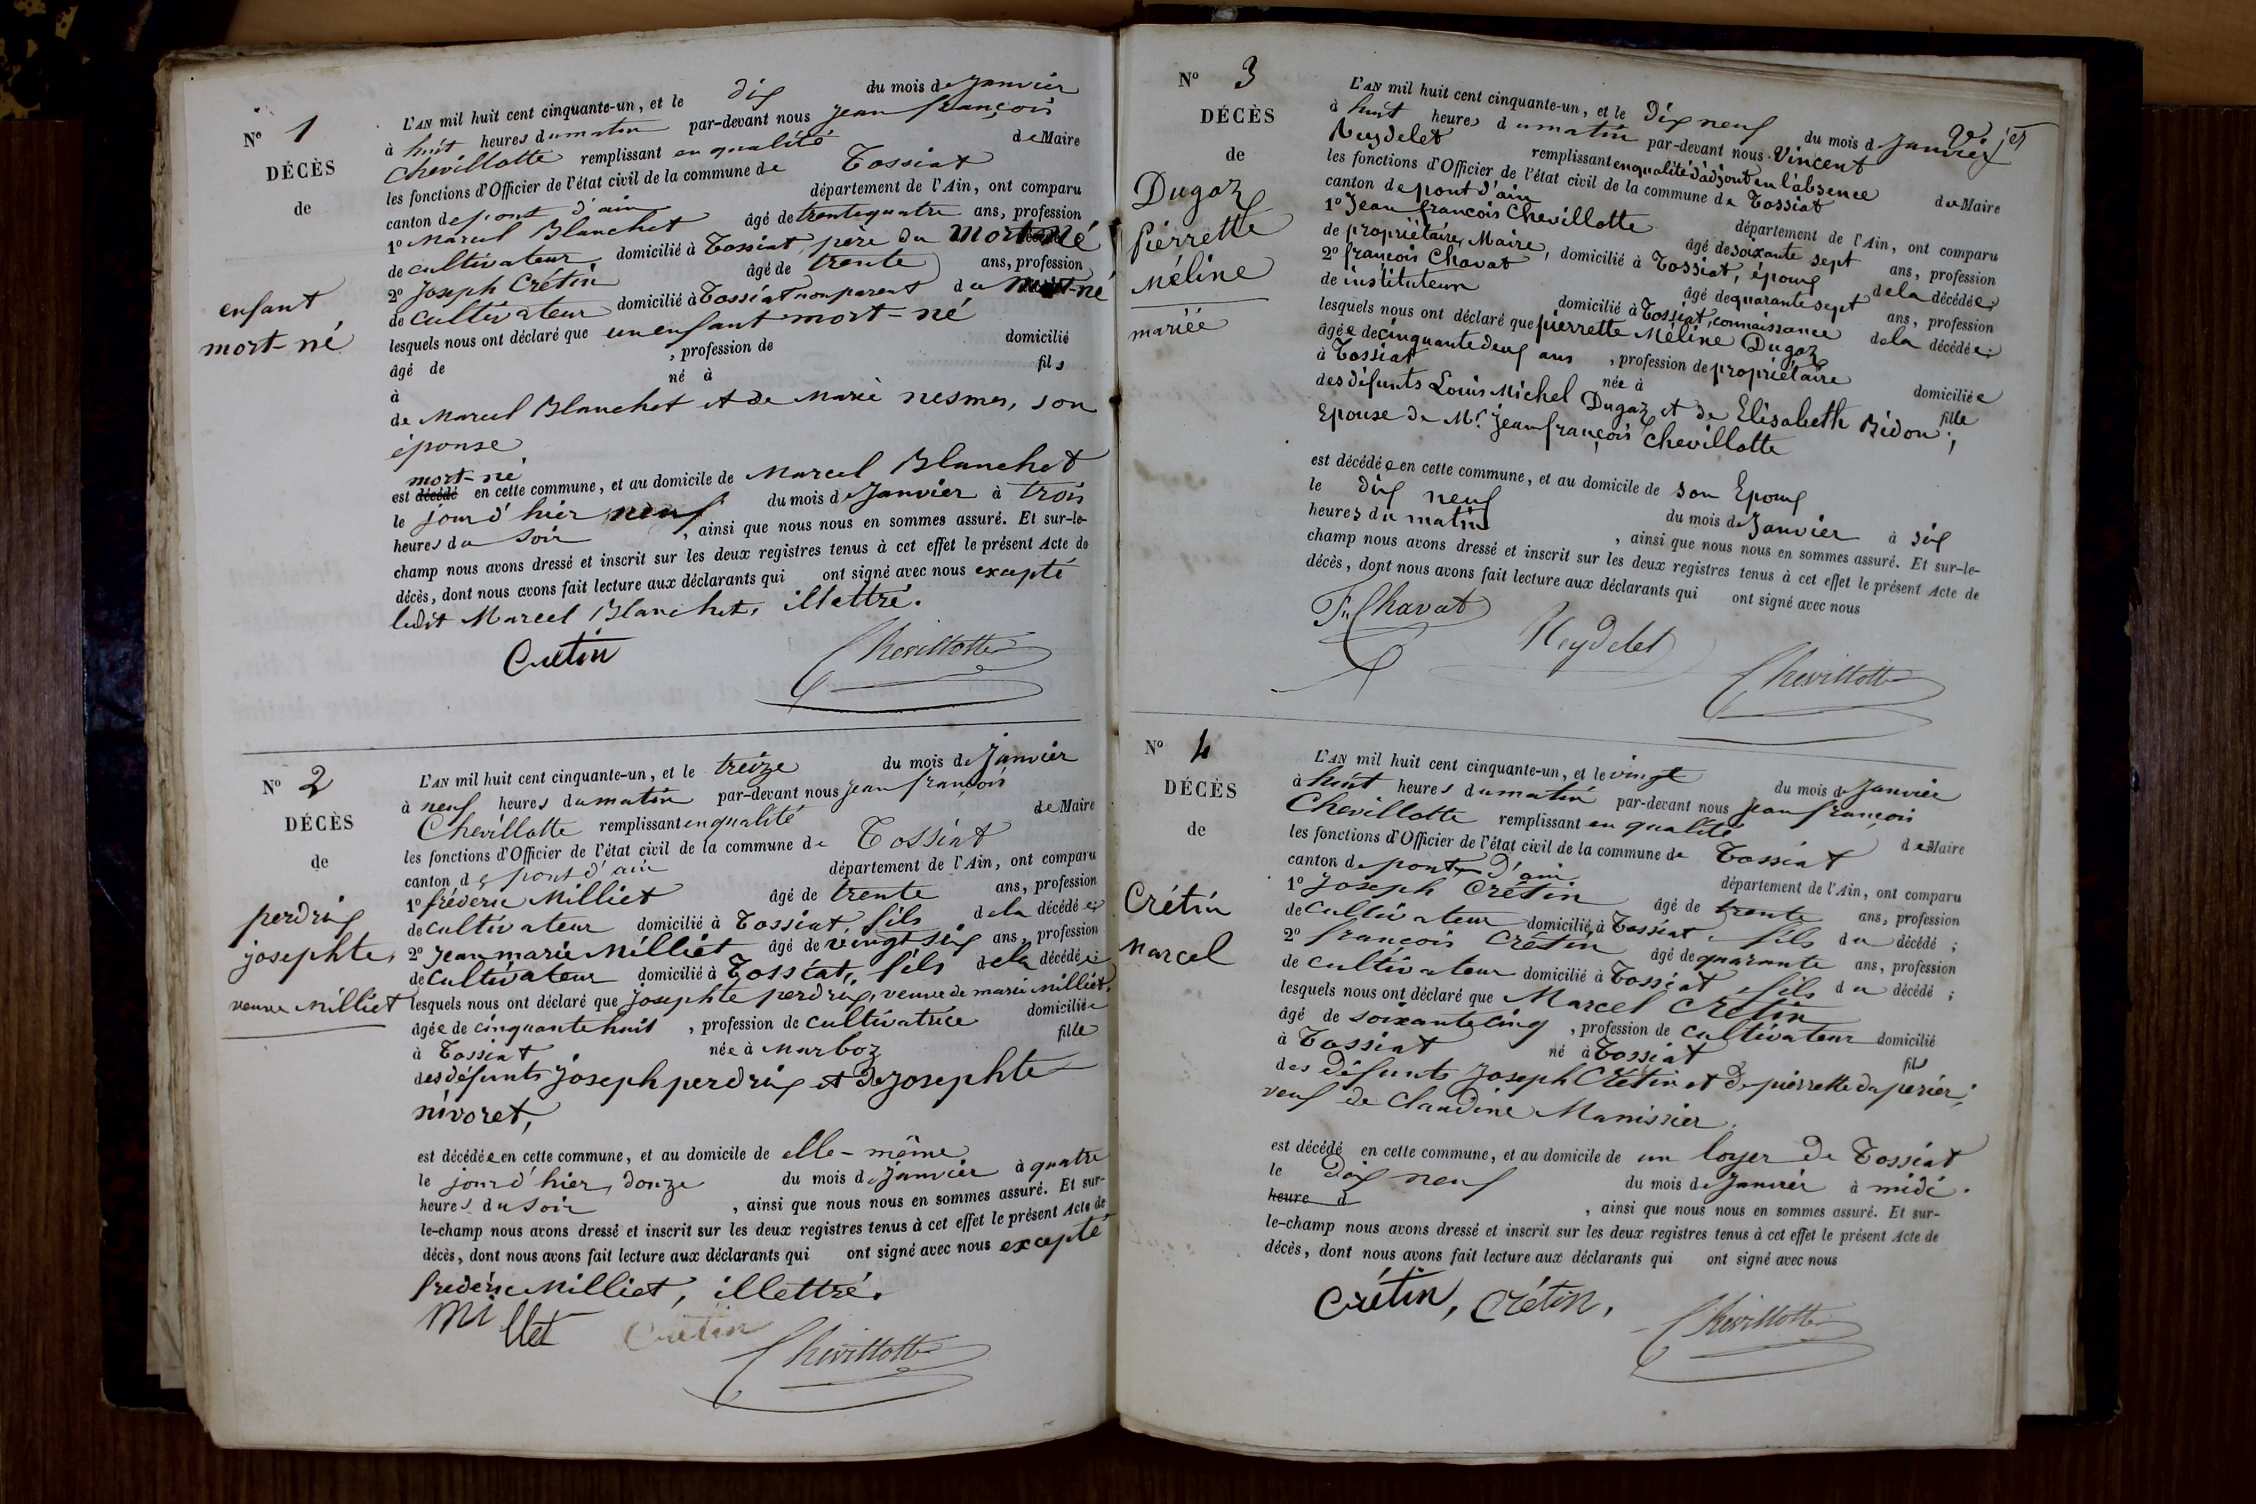 N° 1
DÉCÈS
de
enfant
mort-né
L'AN mil huit cent cinquante-un, et le dix du mois de Janvier
à huit heures du matin par-devant nous Jean françois
Chevillotte remplissant en qualité de Maire
les fonctions d'Officier de l'état civil de la commune de Tossiat
canton de pont d'ain département de l'Ain, ont comparu
1° Marcel Blanchet âgé de trente quatre ans, profession
de cultivateur domicilié à Tossiat père du mort-né
2° Joseph Crétin âgé de trente ans, profession
de cultivateur domicilié à Tossiat non parent du mort-né
lesquels nous ont déclaré que un enfant mort-né
âgé de , profession de domicilié
à né à fils
de Marcel Blanchet et de Marie nesmes, son
épouse
mort-né
est décédé en cette commune, et au domicile de Marcel Blanchet
le jour d'hier neuf du mois de Janvier à trois
heures du soir , ainsi que nous nous en sommes assuré. Et sur-le-
champ nous avons dressé et inscrit sur les deux registres tenus à cet effet le présent Acte de
décès, dont nous avons fait lecture aux déclarants qui ont signé avec nous excepté
ledit Marcel Blanchet, illettré.
Cretin Chevillotte
N° 2
DÉCÈS
de
perdrix
josephte,
veuve Milliet
L'AN mil huit cent cinquante-un, et le treize du mois de Janvier
à neuf heures du matin par-devant nous Jean françois
Chevillotte remplissant en qualité de Maire
les fonctions d'Officier de l'état civil de la commune de Tossiat
canton de pont d'ain département de l'Ain, ont comparu
1° fréderic Milliet âgé de trente ans, profession
de cultivateur domicilié à Tossiat, fils de la décédée;
2° Jean marie Milliet âgé de vingt six ans, profession
de cultivateur domicilié à Tossiat, fils de la décédée;
lesquels nous ont déclaré que Josephte perdrix, veuve de marie Milliet,
âgée de cinquante huit , profession de cultivatrice domiciliée
à Tossiat née à Marboz fille
des défunts Joseph perdrix et de Josephte
nivoret,
est décédée en cette commune, et au domicile de elle-même
le jour d'hier, douze du mois de Janvier à quatre
heures du soir , ainsi que nous nous en sommes assuré. Et sur-
le-champ nous avons dressé et inscrit sur les deux registres tenus à cet effet le présent Acte de
décès, dont nous avons fait lecture aux déclarants qui ont signé avec nous excepté
frederic Milliet, illettré.
Milliet Cretin Chevillotte
N° 3
DÉCÈS
de
Dugaz
Pierrette
Méline
mariée
L'AN mil huit cent cinquante-un, et le dix neuf du mois de Janvier
à huit heures du matin par-devant nous Vincent
Neydelet remplissant en qualité d'adjoint en l'absence du Maire
les fonctions d'Officier de l'état civil de la commune de Tossiat
canton de pont d'ain département de l'Ain, ont comparu
1° Jean françois Chevillotte âgé de soixante sept ans, profession
de propriétaire, Maire, domicilié à Tossiat, époux de la décédée;
2° françois Chavat âgé de quarante sept ans, profession
de instituteur domicilié à Tossiat, connaissance de la décédée;
lesquels nous ont déclaré que pierrette Méline Dugaz
âgée de cinquante deux ans , profession de propriétaire domiciliée
à Tossiat née à fille
des défunts Louis Michel Dugaz et de Elisabeth Bidon;
Epouse de Mr. Jean françois Chevillotte
est décédée en cette commune, et au domicile de son Epoux
le dix neuf du mois de Janvier à six
heures du matin , ainsi que nous nous en sommes assuré. Et sur-le-
champ nous avons dressé et inscrit sur les deux registres tenus à cet effet le présent Acte de
décès, dont nous avons fait lecture aux déclarants qui ont signé avec nous
Fr. Chavat Neydelet Chevillotte
N° 4
DÉCÈS
de
Crétin
Marcel
L'AN mil huit cent cinquante-un, et le vingt du mois de Janvier
à huit heures du matin par-devant nous Jean françois
Chevillotte remplissant en qualité de Maire
les fonctions d'Officier de l'état civil de la commune de Tossiat
canton de pont d'ain département de l'Ain, ont comparu
1° Joseph Crétin âgé de trente ans, profession
de cultivateur domicilié à Tossiat, fils du décédé;
2° françois Crétin âgé de quarante ans, profession
de cultivateur domicilié à Tossiat, fils du décédé;
lesquels nous ont déclaré que Marcel Crétin
âgé de soixante cinq , profession de cultivateur domicilié
à Tossiat né à Tossiat fils
des défunts Joseph Crétin et de pierrette duperier;
veuf de Claudine Manissier.
est décédé en cette commune, et au domicile de un loyer de Tossiat
le dix neuf du mois de Janvier à midi.
heure d , ainsi que nous nous en sommes assuré. Et sur-
le-champ nous avons dressé et inscrit sur les deux registres tenus à cet effet le présent Acte de
décès, dont nous avons fait lecture aux déclarants qui ont signé avec nous
Crétin, Crétin, Chevillotte